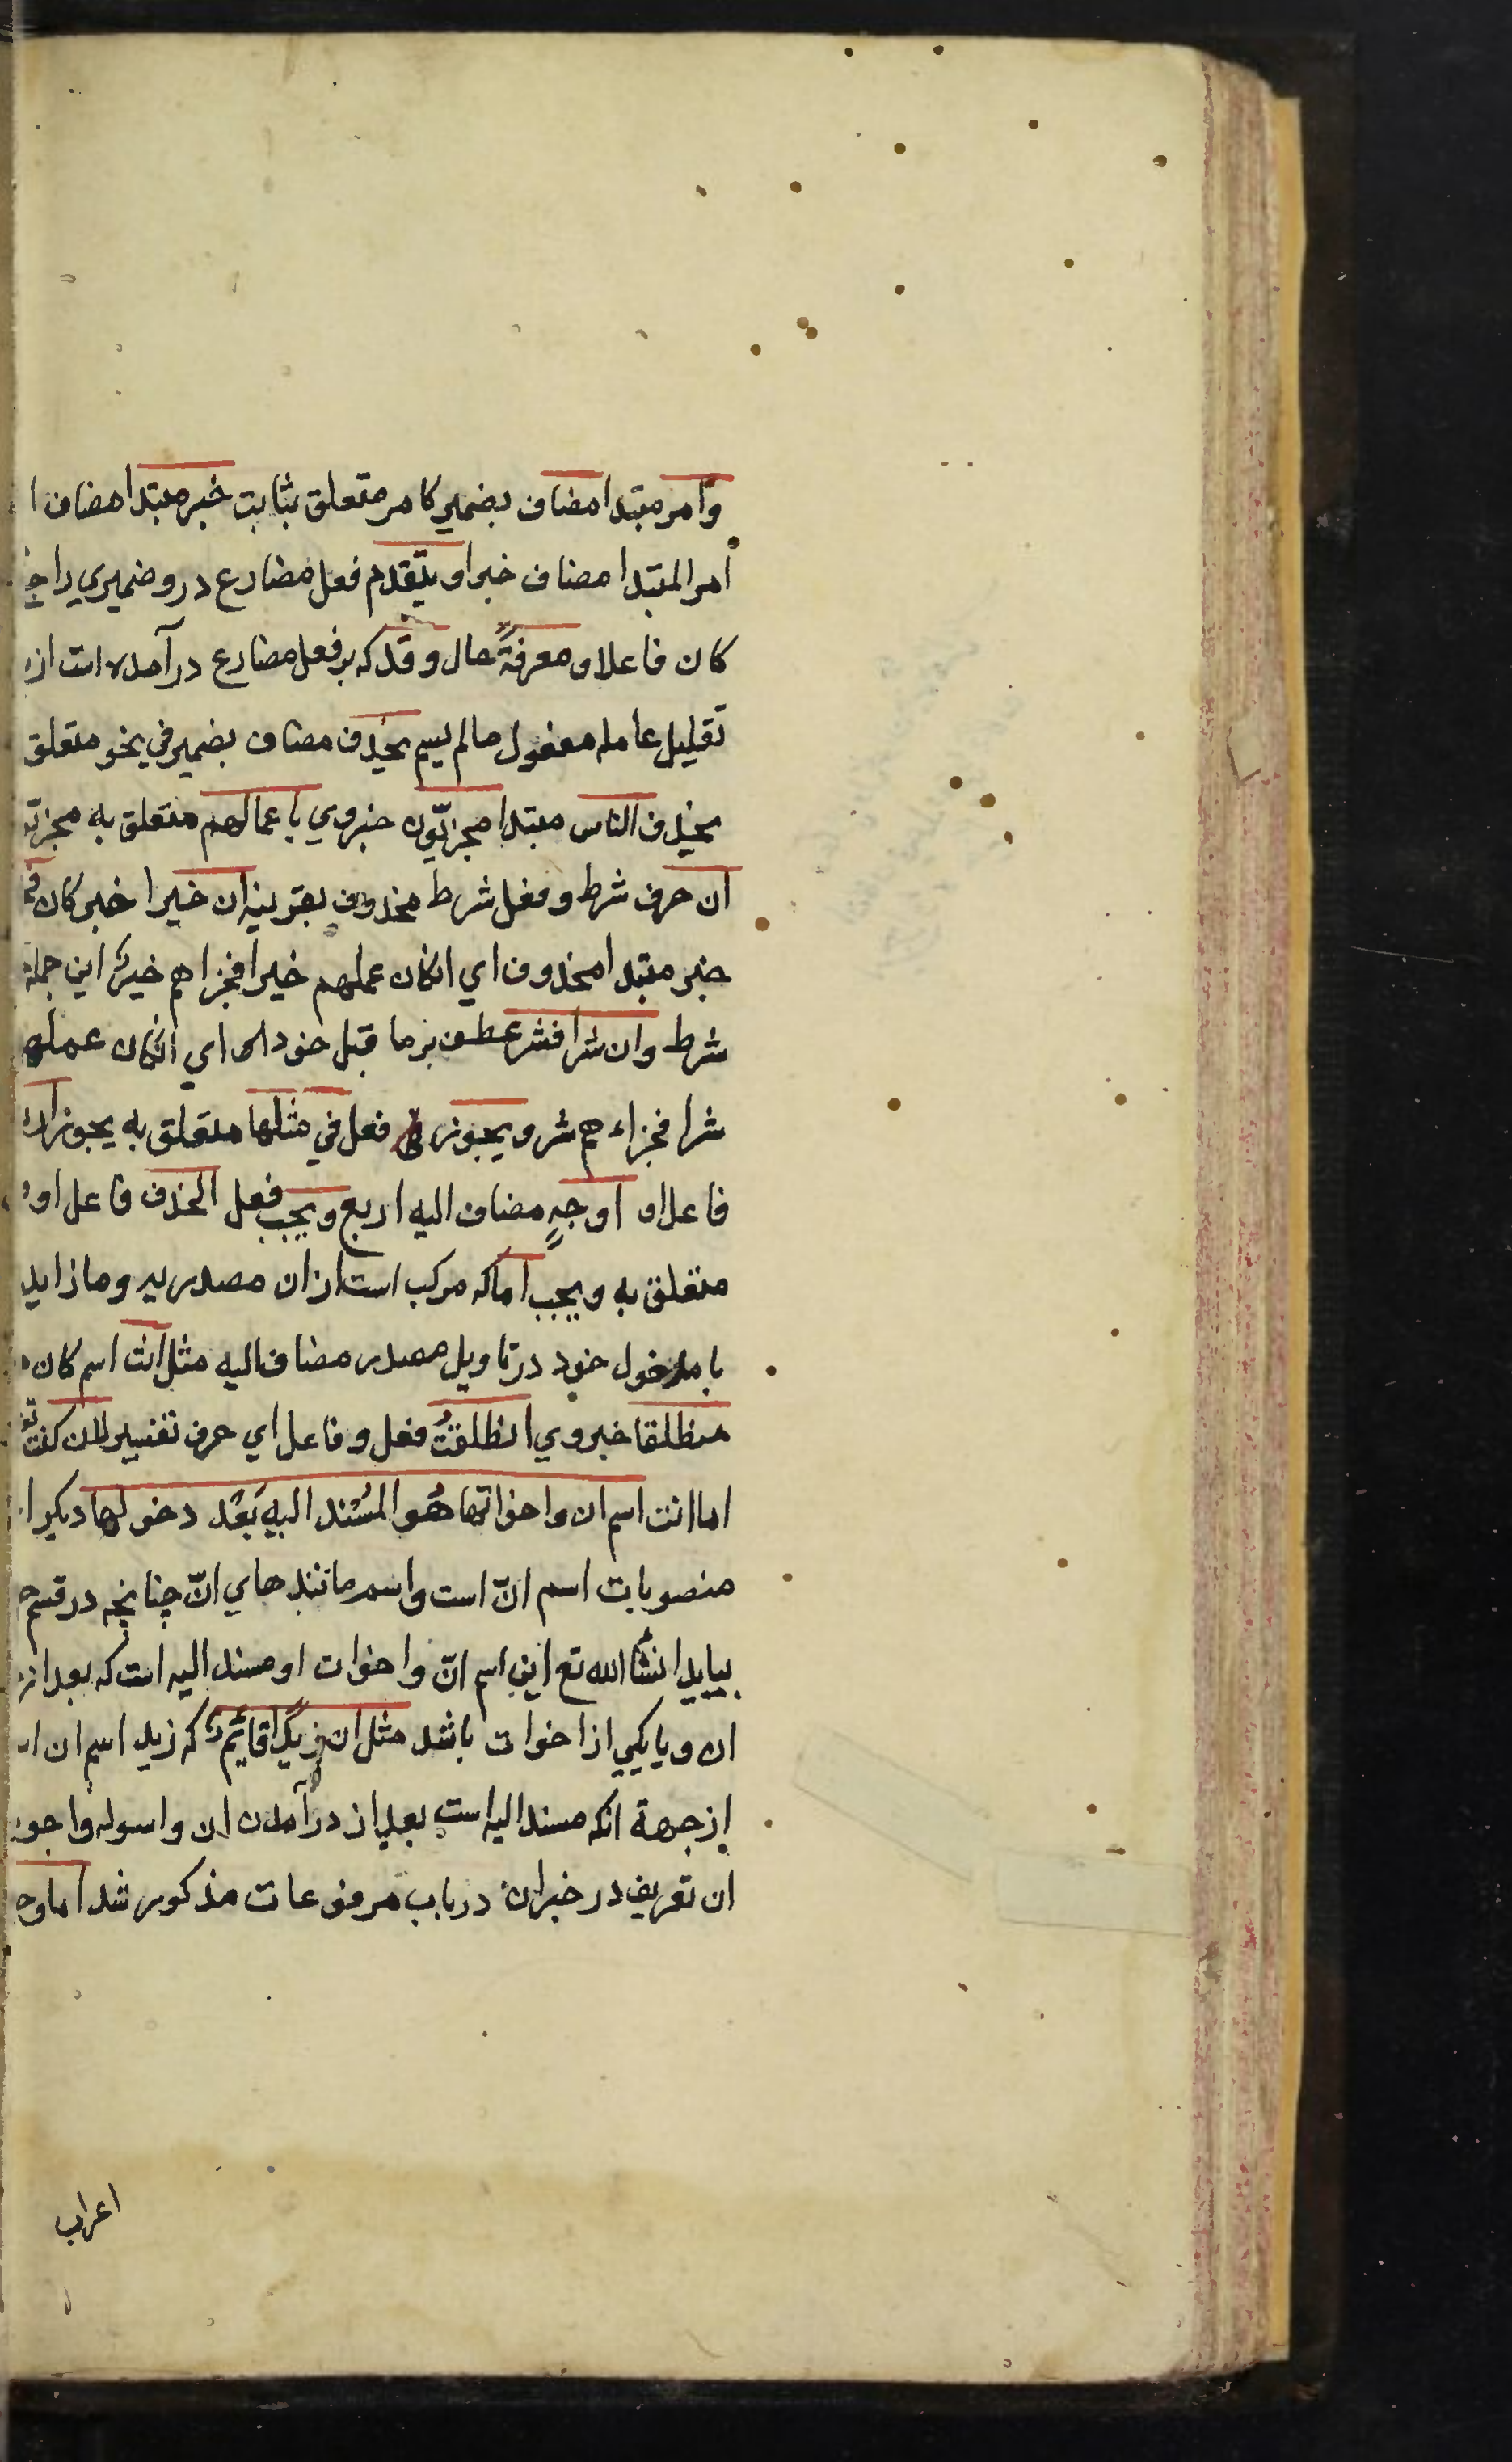 وامر مبتدا مضاف بضمير كامر متعلق بثابت خبر مبتدا مضاف ا
امر المبتدا مضاف خبر او يتقدم فعل مضارع درو ضميري راجع
كان فاعل او معرفةً حال و قد كه بر فعل مضارع در آمده است از
تقليل عامله مفعول مالم يسم يحذف مضاف بضمير في نحو متعلق
يحذف الناس مبتدا مجزيّون خبر وي باعمالهم متعلق به مجزيّو
ان حرف شرط و فعل شرط محذوف بقرينه ان خيرا خبر كان
خبر مبتدا محذوف اي انكان عملهم خيرا فجزاهم خيرٌ اين جمله
شرط وان شرا فشر عطف بر ما قبل خود است اي انكان عملهم
شرا فجزاءهم شر و يجوز فعل في مثلها متعلق به يجوز اربع
فاعل او اوجهٍ مضاف اليه اربع و يجب فعل الحذف فاعل او
متعلق به و يجب اما كه مركب است از ان مصدريه و ما زايد
با مدخول خود در تاويل مصدر مضاف اليه مثل انت اسم كان
منطلقا خبر وي انطلقتُ فعل و فاعل اي حرف تفسير لان كنت
اما انت اسم ان و اخواتها هُو المسْند اليهِ بَعْد دخولها ديكر ا
منصوبات اسم انّ است و اسم مانندهاي انّ چنانچه در قسم
بيايد انشأ الله تع اين اسم انّ و اخوات او مسند اليه است كه بعد از
ان و يا يكي از اخوات باشد مثل ان زيدًا قايمٌ كه زيد اسم ان ا
از جهة انكه مسند اليه است بعد از در آمدن ان و اسوله و اجو
ان تعريف در خبر ان در باب مرفوعات مذكور شد اما و
اعراب